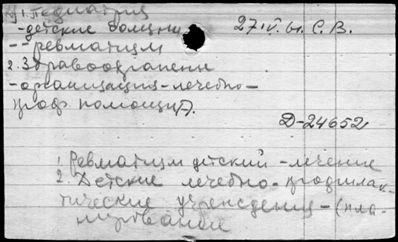 1. Педиатрия
27.IV.61. С.В.
- детские болезни
-- ревматизм
2. Здравоохранени
- организация - лечебно -
проф. помощи).
D-24652
1. Ревматизм детский - лечение
2. Детские лечебно - профилак-
тические учреждения - (пла-
нирование